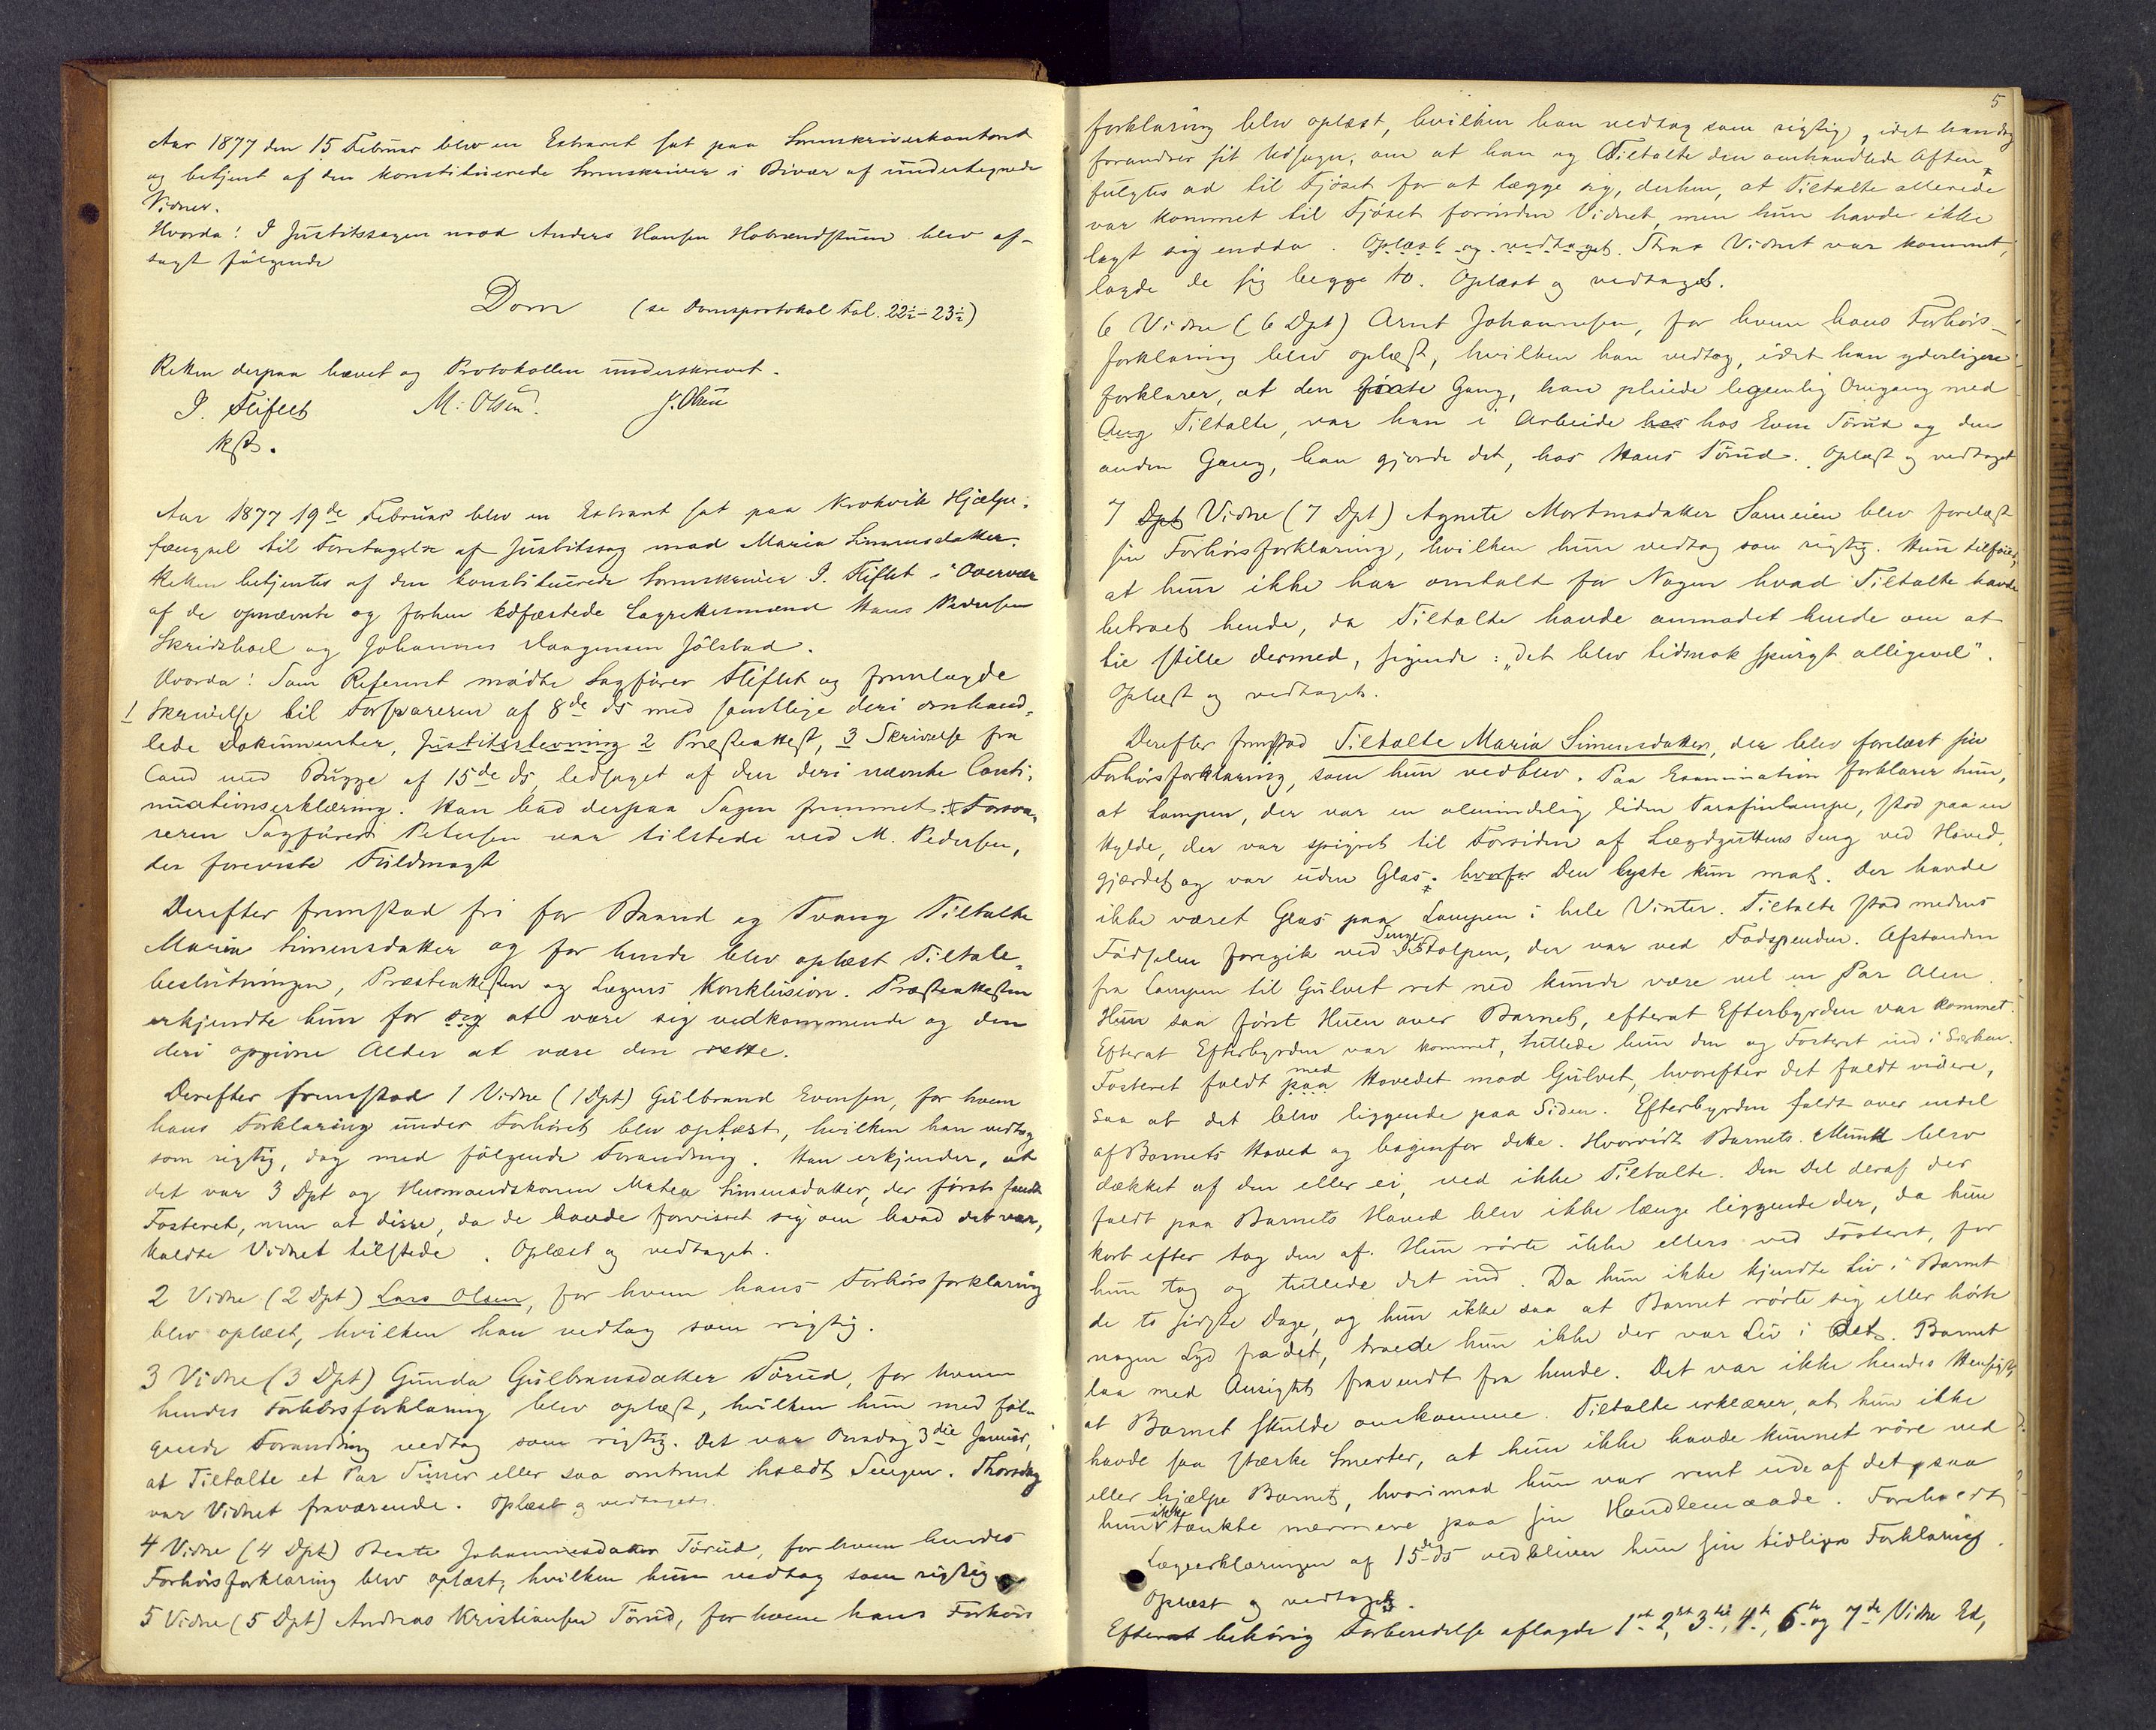 Aar 1877 den 15 Februar blev en Extraret sat paa Sorenskriverkontoret
og betjent af den konstituerede Sorenskriver i Bivær af undertegnede
Vidner.
Hvorda! I Justitssagen mod Anders Hansen blev af-
sagt følgende
Dom (se Domsprotokol fol. 22½-23½)
Retten derpaa hævet og Protokollen underskrevet.
J. Fliflet M. Olsen. J. Olsen
kst.
Aar 1877 19de Februar blev en Extraret sat paa Krokvik Hjælpe-
fængsel til Foretagelse af Justitssag mod Maria Simensdatter.
Retten betjentes af den konstituerede Sorenskriver J. Fliflet i Overvær
af de opnævnte og forhen edfæstede Lagrettesmænd Hans Pedersen
Skridshoel og Johannes Haagensen Jølstad.
Hvorda! Som Referent mødte Sagfører Fliflet og fremlagde
1 Skrivelse til Forsvareren af 8de ds med samtlige deri omhand-
lede Dokumenter, Justitsstevning 2 Præsteattest, 3 Skrivelse fra
Cand med Bugge af 15de ds, ledsaget af den deri nævnte Conti-
nuationserklæring. Han bad derpaa Sagen fremmet. Forsva-
reren Sagfører Petersen var tilstede ved M. Pedersen,
der foreviste Fuldmagt
Derefter fremstod fri for Baand og Tvang Tiltalte
Maria Simensdatter og for hende blev oplæst Tiltale-
beslutningen, Præsteattesten og Lægens Konklusion. Præsteattesten
erkjendte hun for seg at være sig vedkommende og den
deri opgivne Alder at være den rette.
Derefter fremstod 1 Vidne (1 Dpt) Gulbrand Evensen, for hvem
hans Forklaring under Forhøret blev oplæst, hvilken han vedtog
som rigtig, dog med følgende Forandring. Han erkjender, at
det var 3 Dpt og Husmandskonen Mathea Simensdatter, der først fandt
Fosteret, men at disse, da de havde forvisset sig om hvad det var,
kaldte Vidnet tilstede. Oplæst og vedtaget.
2 Vidne (2 Dpt) Lars Olsen, for hvem hans Forhørsforklaring
blev oplæst, hvilken han vedtog som rigtig.
3 Vidne (3 Dpt) Gunda Gulbransdatter Tørud, for hvem
hendes Forhørsforklaring blev oplæst, hvilken hun med føl-
gende Forandring vedtog som rigtig. Det var Onsdag 3die Januar,
at Tiltalte et Par Timer eller saa omtrent holdt Sengen. Thorsdag
var Vidnet fraværende. Oplæst og vedtaget.
4 Vidne (4 Dpt) Beate Johannesdatter Tørud, for hvem hendes
Forhørsforklaring blev oplæst, hvilken hun vedtog som rigtig.
5 Vidne (5 Dpt) Andreas Kristiansen Tørud, for hvem hans Forhørs
5
forklaring blev oplæst, hvilken han vedtog som rigtig, idet han dog
forandrer sit Udsagn, om at han og Tiltalte den omhandlede Aften
fulgtes ad til Fjøset for at lægge sig, derhen, at Tiltalte allerede
var kommet til Fjøset forinden Vidnet, men hun havde ikke
lagt sig endda. Oplæst og vedtaget. Strax Vidnet var kommet,
lagde de sig begge to. Oplæst og vedtaget.
6 Vidne (6 Dpt) Arnt Johannesen, for hvem hans Forhørs-
forklaring blev oplæst, hvilken han vedtog, idet han yderligere
forklarer, at den første Gang, han pleiede legemlig Omgang med
Ang Tiltalte, var han i Arbeide hos hos Even Tørud og den
anden Gang, han gjorde det, hos Hans Tørud. Oplæst og vedtaget
7 Dpt Vidne (7 Dpt) Agnete Mortensdatter Sameien blev forelæst
sin Forhørsforklaring, hvilken hun vedtog som rigtig. Hun tilføier,
at hun ikke har omtalt for Nogen hvad Tiltalte havde
betroet hende, da Tiltalte havde anmodet hende om at
tie stille dermed, sigende: „det blev tidsnok spurgt alligevel".
Oplæst og vedtaget.
Derefter fremstod Tiltalte Maria Simensdatter, der blev forelæst sin
Forhørsforklaring, som hun vedblev. Paa Examination forklarer hun,
at Lampen, der var en almindelig liden Parafinlampe, stod paa en
Hylde, der var spigret til Forsiden af Lægdguttens Seng ved Hoved-
gjærdet og var uden Glas. hvorfor Den lyste kun mat. Der havde
ikke været Glas paa Lampen i hele Vinter. Tiltalte stod medens
Fødselen foregik ved Senge Stolpen, der var ved Fodspenden. Afstanden
fra Lampen til Gulvet ret ned kunde være vel en Par Alen
Hun saa først Huen over Barnet, efterat Efterbyrden var kommet.
Efterat Efterbyrden var kommet, tullede hun den og Fosteret ind i Særken.
Fosteret faldt paa med Hovedet mod Gulvet, hvorefter det faldt videre,
saa at det blev liggende paa Siden. Efterbyrden faldt over endel
af Barnets Hoved og bagenfor dette. Hvorvidt Barnets Mund blev
dækket af den eller ei, ved ikke Tiltalte. Den Del deraf der
faldt paa Barnets Hoved blev ikke længe liggende der, da hun
kort efter tog den af. Hun rørte ikke ellers ved Fosteret, før
hun tog og tullede det ind. Da hun ikke kjendte Liv i Barnet
de to sidste Dage, og hun ikke saa at Barnet rørte sig eller hørte
nogen Lyd fra det, troede hun ikke der var Liv i det. Barnet
laa med Ansigtet fravendt fra hende. Det var ikke hendes Hensigt,
at Barnet skulde omkomme. Tiltalte erklærer, at hun ikke
havde saa stærke Smerter, at hun ikke havde kunnet røre ved
eller hjælpe Barnet, hvorimod hun var rent ude af det, saa
hun ikke tænkte nærmere paa sin Handlemaade. Foreholdt
Lægeerklæringen af 15de ds vedbliver hun sin tidligere Forklaring.
Oplæst og vedtaget.
Efterat behørig Forberedelse aflagde 1st, 2det, 3die, 4de, 6te og 7de Vidne Ed,